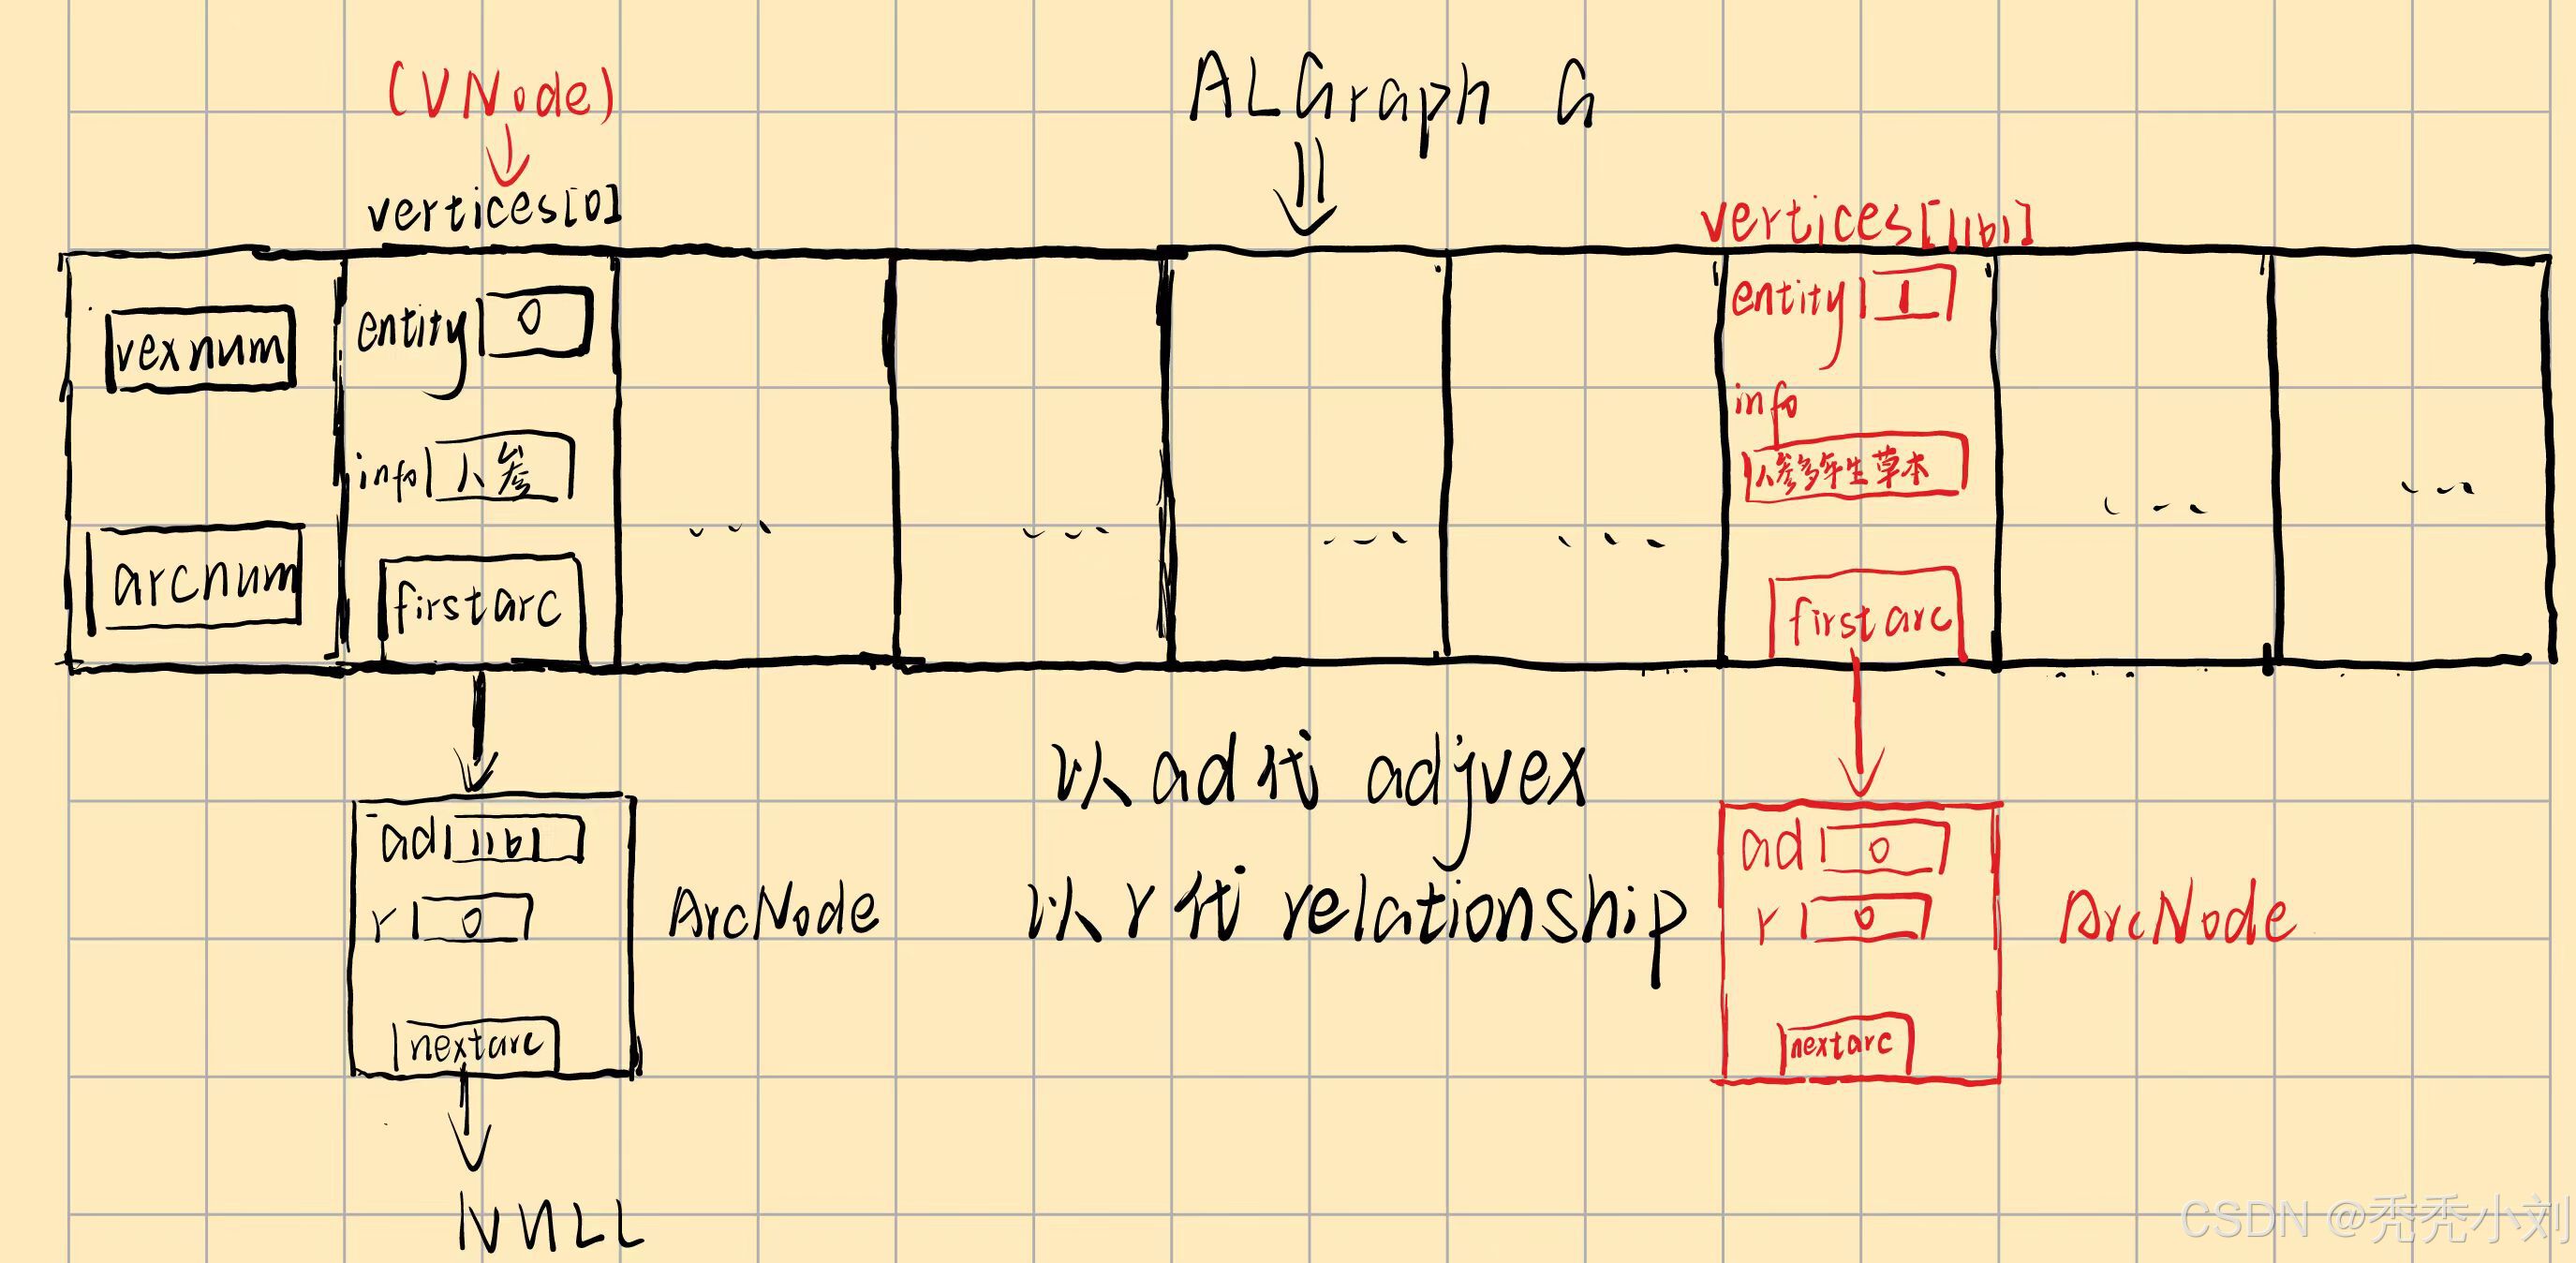 (VNode)
ALGraph G
vertices[0]
vertices[1161]
vexnum
arcnum
entity 0
info 人参
firstarc
... ... ... ...
entity 1
info
人参多年生草本
firstarc
... ...
ad 1161
r 0
nextarc
ArcNode
NULL
以ad代 adjvex
以r代 relationship
ad 0
r 0
nextarc
ArcNode
CSDN @秃秃小刘